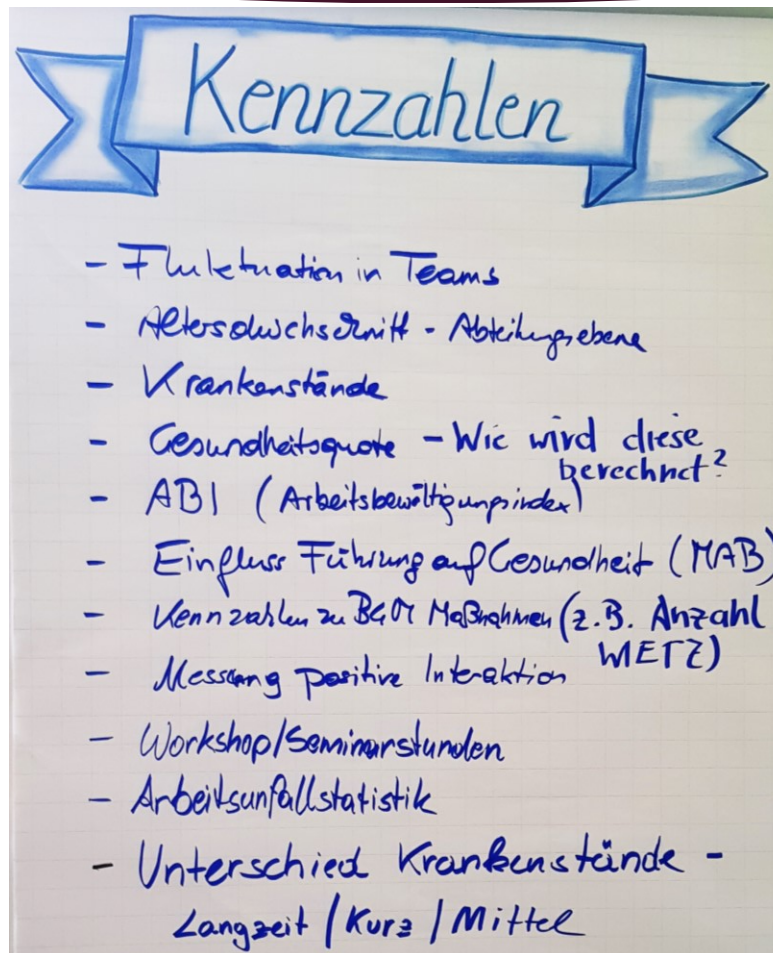 Kennzahlen
- Fluktuation in Teams
- Altersdurchschnitt - Abteilungsebene
- Krankenstände
- Gesundheitsquote - Wie wird diese
berechnet?
- ABI (Arbeitsbewältigungsindex)
- Einfluss Führung auf Gesundheit (MAB)
- Kennzahlen zu BGM Maßnahmen (z.B. Anzahl
WIETZ)
- Messung positive Interaktion
- Workshop/Seminarstunden
- Arbeitsunfallstatistik
- Unterschied Krankenstände -
Langzeit / Kurz / Mittel